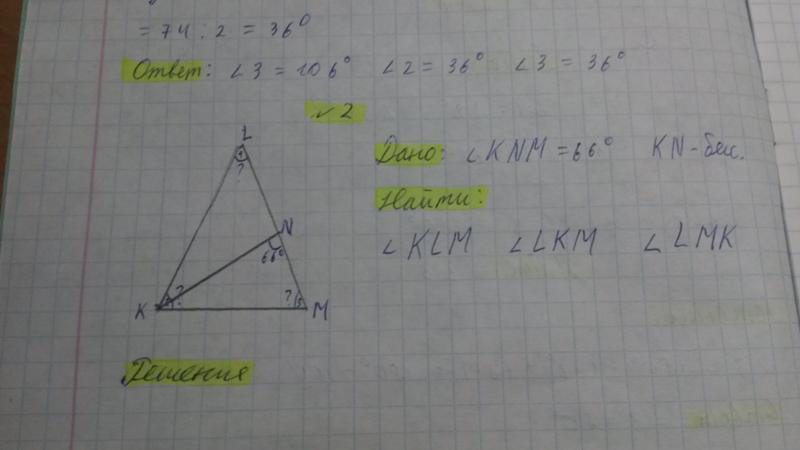 = 74 : 2 = 36°
Ответ: ∠3 = 106° ∠2 = 36° ∠3 = 36°
№2
Дано: ∠KNM = 66° KN - бис.
Найти:
∠KLM ∠LKM ∠LMK
L
?
N
66°
K ? ? M
Решения